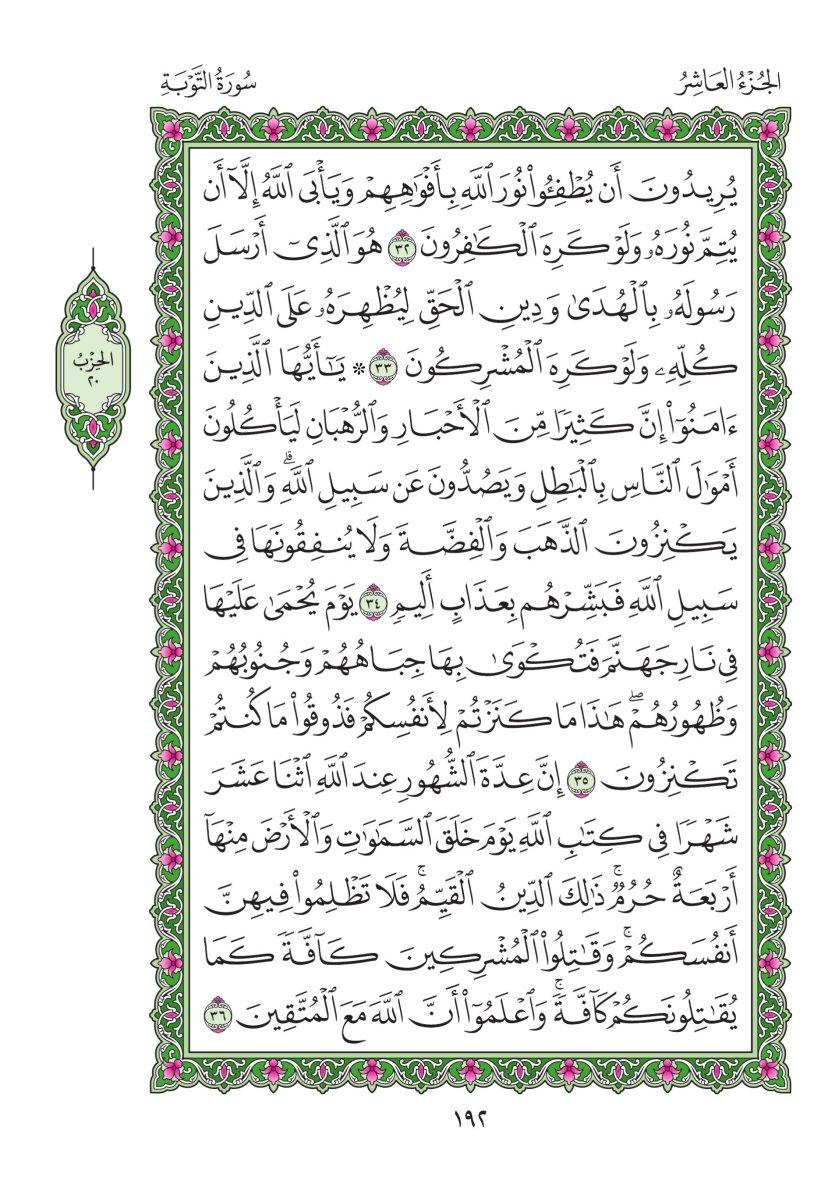 الجُزْءُ العَاشِرُ
سُورَةُ التَّوْبَةِ
يُرِيدُونَ أَن يُطْفِـُٔوا۟ نُورَ ٱللَّهِ بِأَفْوَٰهِهِمْ وَيَأْبَى ٱللَّهُ إِلَّآ أَن
يُتِمَّ نُورَهُۥ وَلَوْ كَرِهَ ٱلْكَـٰفِرُونَ ٣٢ هُوَ ٱلَّذِىٓ أَرْسَلَ
رَسُولَهُۥ بِٱلْهُدَىٰ وَدِينِ ٱلْحَقِّ لِيُظْهِرَهُۥ عَلَى ٱلدِّينِ
كُلِّهِۦ وَلَوْ كَرِهَ ٱلْمُشْرِكُونَ ٣٣ * يَـٰٓأَيُّهَا ٱلَّذِينَ
ءَامَنُوٓا۟ إِنَّ كَثِيرًا مِّنَ ٱلْأَحْبَارِ وَٱلرُّهْبَانِ لَيَأْكُلُونَ
أَمْوَٰلَ ٱلنَّاسِ بِٱلْبَـٰطِلِ وَيَصُدُّونَ عَن سَبِيلِ ٱللَّهِۗ وَٱلَّذِينَ
يَكْنِزُونَ ٱلذَّهَبَ وَٱلْفِضَّةَ وَلَا يُنفِقُونَهَا فِى
سَبِيلِ ٱللَّهِ فَبَشِّرْهُم بِعَذَابٍ أَلِيمٍ ٣٤ يَوْمَ يُحْمَىٰ عَلَيْهَا
فِى نَارِ جَهَنَّمَ فَتُكْوَىٰ بِهَا جِبَاهُهُمْ وَجُنُوبُهُمْ
وَظُهُورُهُمْۖ هَـٰذَا مَا كَنَزْتُمْ لِأَنفُسِكُمْ فَذُوقُوا۟ مَا كُنتُمْ
تَكْنِزُونَ ٣٥ إِنَّ عِدَّةَ ٱلشُّهُورِ عِندَ ٱللَّهِ ٱثْنَا عَشَرَ
شَهْرًا فِى كِتَـٰبِ ٱللَّهِ يَوْمَ خَلَقَ ٱلسَّمَـٰوَٰتِ وَٱلْأَرْضَ مِنْهَآ
أَرْبَعَةٌ حُرُمٌۚ ذَٰلِكَ ٱلدِّينُ ٱلْقَيِّمُۚ فَلَا تَظْلِمُوا۟ فِيهِنَّ
أَنفُسَكُمْۚ وَقَـٰتِلُوا۟ ٱلْمُشْرِكِينَ كَآفَّةً كَمَا
يُقَـٰتِلُونَكُمْ كَآفَّةًۚ وَٱعْلَمُوٓا۟ أَنَّ ٱللَّهَ مَعَ ٱلْمُتَّقِينَ ٣٦
الحِزْبُ
٢٠
١٩٢